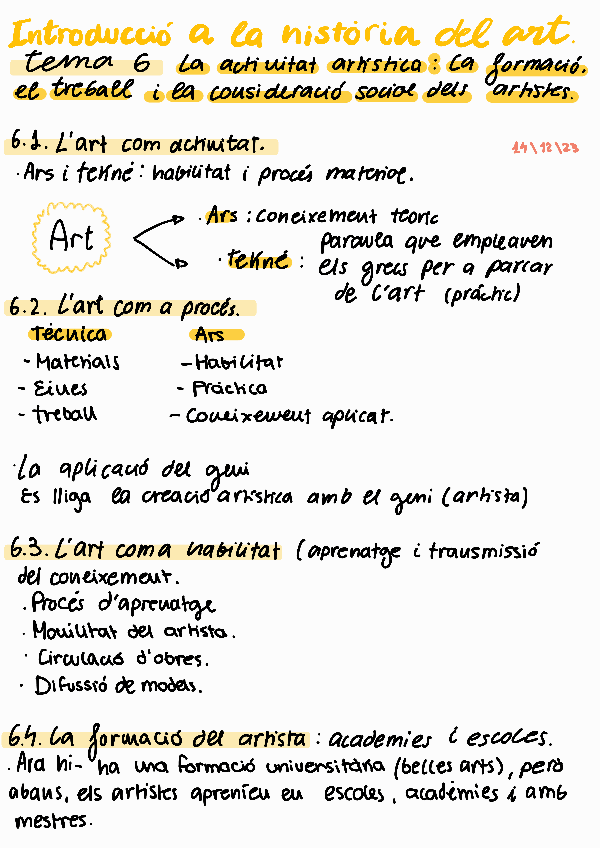 Introducció a la història del art.
tema 6 La activitat artística: La formació,
el treball i la consideració social dels artistes.
6.1. L'art com activitat.
14\12\23
· Ars i tekné: habilitat i procés material.
Art
· Ars: coneixement teoric
· tekné: paraula que empleaven
els grecs per a parlar
de l'art (pràctic)
6.2. L'art com a procés.
Tècnica Ars
- Materials - Habilitat
- Eines - Pràctica
- treball - Coneixement aplicat.
· La aplicació del geni
Es lliga la creació artística amb el geni (artista)
6.3. L'art com a habilitat (aprenatge i transmissió
del coneixement.
· Procés d'aprenatge
· Movilitat del artista.
· Circulació d'obres.
· Difussió de models.
6.4. La formació del artista: academies i escoles.
· Ara hi-ha una formació universitària (belles arts), però
abans, els artistes apreníeu en escoles, acadèmies i amb
mestres.